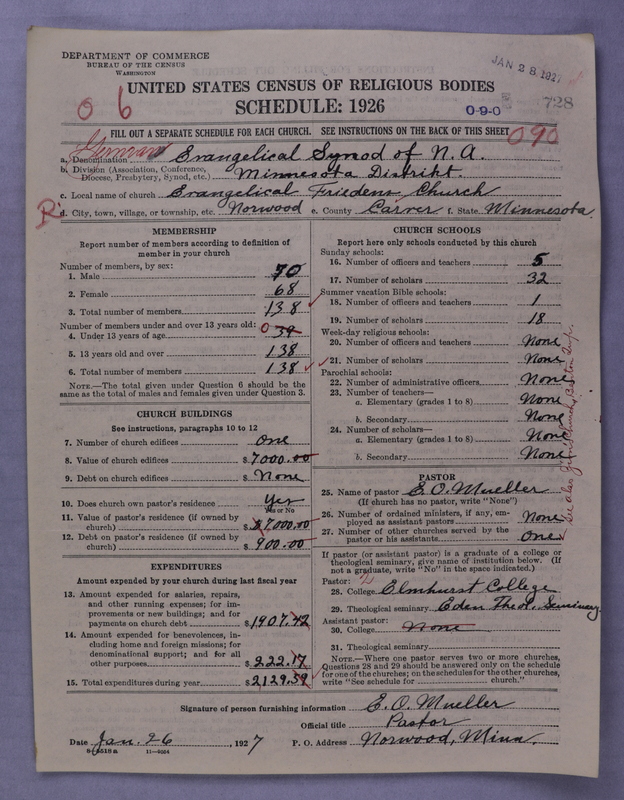 DEPARTMENT OF COMMERCE
BUREAU OF THE CENSUS
WASHINGTON
JAN 28 1927
UNITED STATES CENSUS OF RELIGIOUS BODIES
SCHEDULE: 1926
0 6
0-9-0
728
FILL OUT A SEPARATE SCHEDULE FOR EACH CHURCH. SEE INSTRUCTIONS ON THE BACK OF THIS SHEET
090
German
a. Denomination Evangelical Synod of N. A.
b. Division (Association, Conference, Diocese, Presbytery, Synod, etc.) Minnesota Distrikt.
c. Local name of church Evangelical Friedens Church
R
d. City, town, village, or township, etc. Norwood e. County Carver f. State Minnesota.
MEMBERSHIP
Report number of members according to definition of member in your church
Number of members, by sex:
1. Male 70
2. Female 68
3. Total number of members 138
Number of members under and over 13 years old:
4. Under 13 years of age 0 39
5. 13 years old and over 138
6. Total number of members 138
NOTE.—The total given under Question 6 should be the same as the total of males and females given under Question 3.
CHURCH BUILDINGS
See instructions, paragraphs 10 to 12
7. Number of church edifices one
8. Value of church edifices $7000.00
9. Debt on church edifices $None
10. Does church own pastor's residence Yes
Yes or No
11. Value of pastor's residence (if owned by church) $7000.00
12. Debt on pastor's residence (if owned by church) $900.00
EXPENDITURES
Amount expended by your church during last fiscal year
13. Amount expended for salaries, repairs, and other running expenses; for improvements or new buildings; and for payments on church debt $1907.42
14. Amount expended for benevolences, including home and foreign missions; for denominational support; and for all other purposes $222.17
15. Total expenditures during year $2129.59
CHURCH SCHOOLS
Report here only schools conducted by this church
Sunday schools:
16. Number of officers and teachers 5
17. Number of scholars 32
Summer vacation Bible schools:
18. Number of officers and teachers 1
19. Number of scholars 18
Week-day religious schools:
20. Number of officers and teachers None
21. Number of scholars None
Parochial schools:
22. Number of administrative officers None
23. Number of teachers—
a. Elementary (grades 1 to 8) None
b. Secondary None
24. Number of scholars—
a. Elementary (grades 1 to 8) None
b. Secondary None
PASTOR
25. Name of pastor E. O. Mueller
(If church has no pastor, write "None")
26. Number of ordained ministers, if any, employed as assistant pastors None
27. Number of other churches served by the pastor or his assistants one
If pastor (or assistant pastor) is a graduate of a college or theological seminary, give name of institution below. (If not a graduate, write "No" in the space indicated.)
Pastor: 2
28. College Elmhurst College
29. Theological seminary Eden Theol. Seminary
Assistant pastor:
30. College None
31. Theological seminary
NOTE.—Where one pastor serves two or more churches, Questions 28 and 29 should be answered only on the schedule for one of the churches; on the schedules for the other churches, write "See schedule for church."
See also
Signature of person furnishing information E. O. Mueller
Official title Pastor
Date Jan. 26, 1927 P. O. Address Norwood, Minn.
8-6518a 11-9064